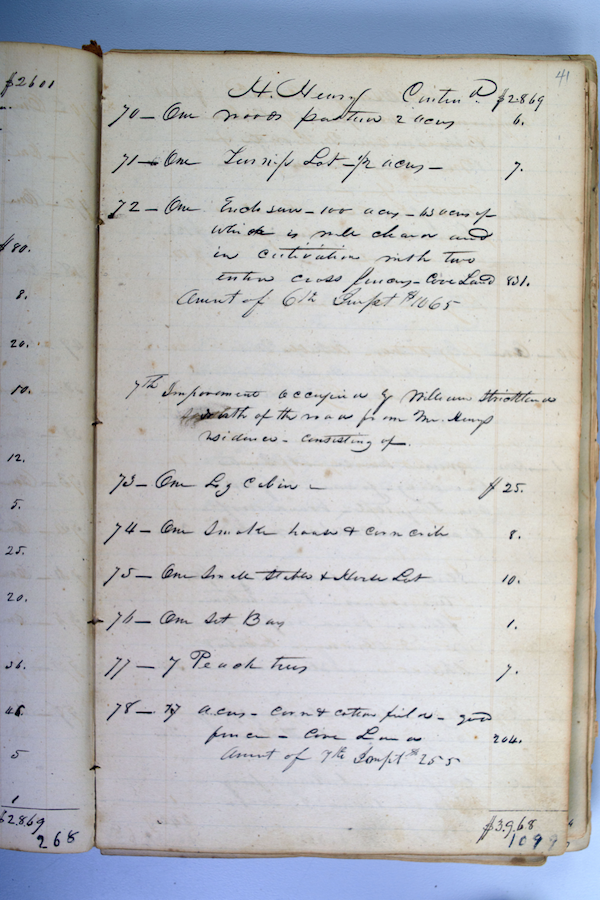 $2601
$80.
8.
20.
10.
12.
5.
25.
20.
36.
45.
5
1
$2869
268
41
H. Henry Contin d. $2869
70 — One woods pasture 2 acres 6.
71 — One Turnip Lot — 1/2 acres — 7.
72 — One Enclosure — 100 acres — 45 acres of
which is well cleared and
in cultivation with two
cross fences — Cove Land 831.
Amount of 6th Impt $1065
7th Improvement occupied by William Strickland
South of the road from Mr. Henrys
residence — consisting of.
73 — One Log Cabin — $25.
74 — One Smoke house & corn crib 8.
75 — One Small Stable & Horse Lot 10.
76 — One Set Bars 1.
77 — 7 Peach trees 7.
78 — 17 acres — corn & cotton field — good
fence — Cove Land 204.
Amount of 7th Impt $255
$3.968
1099